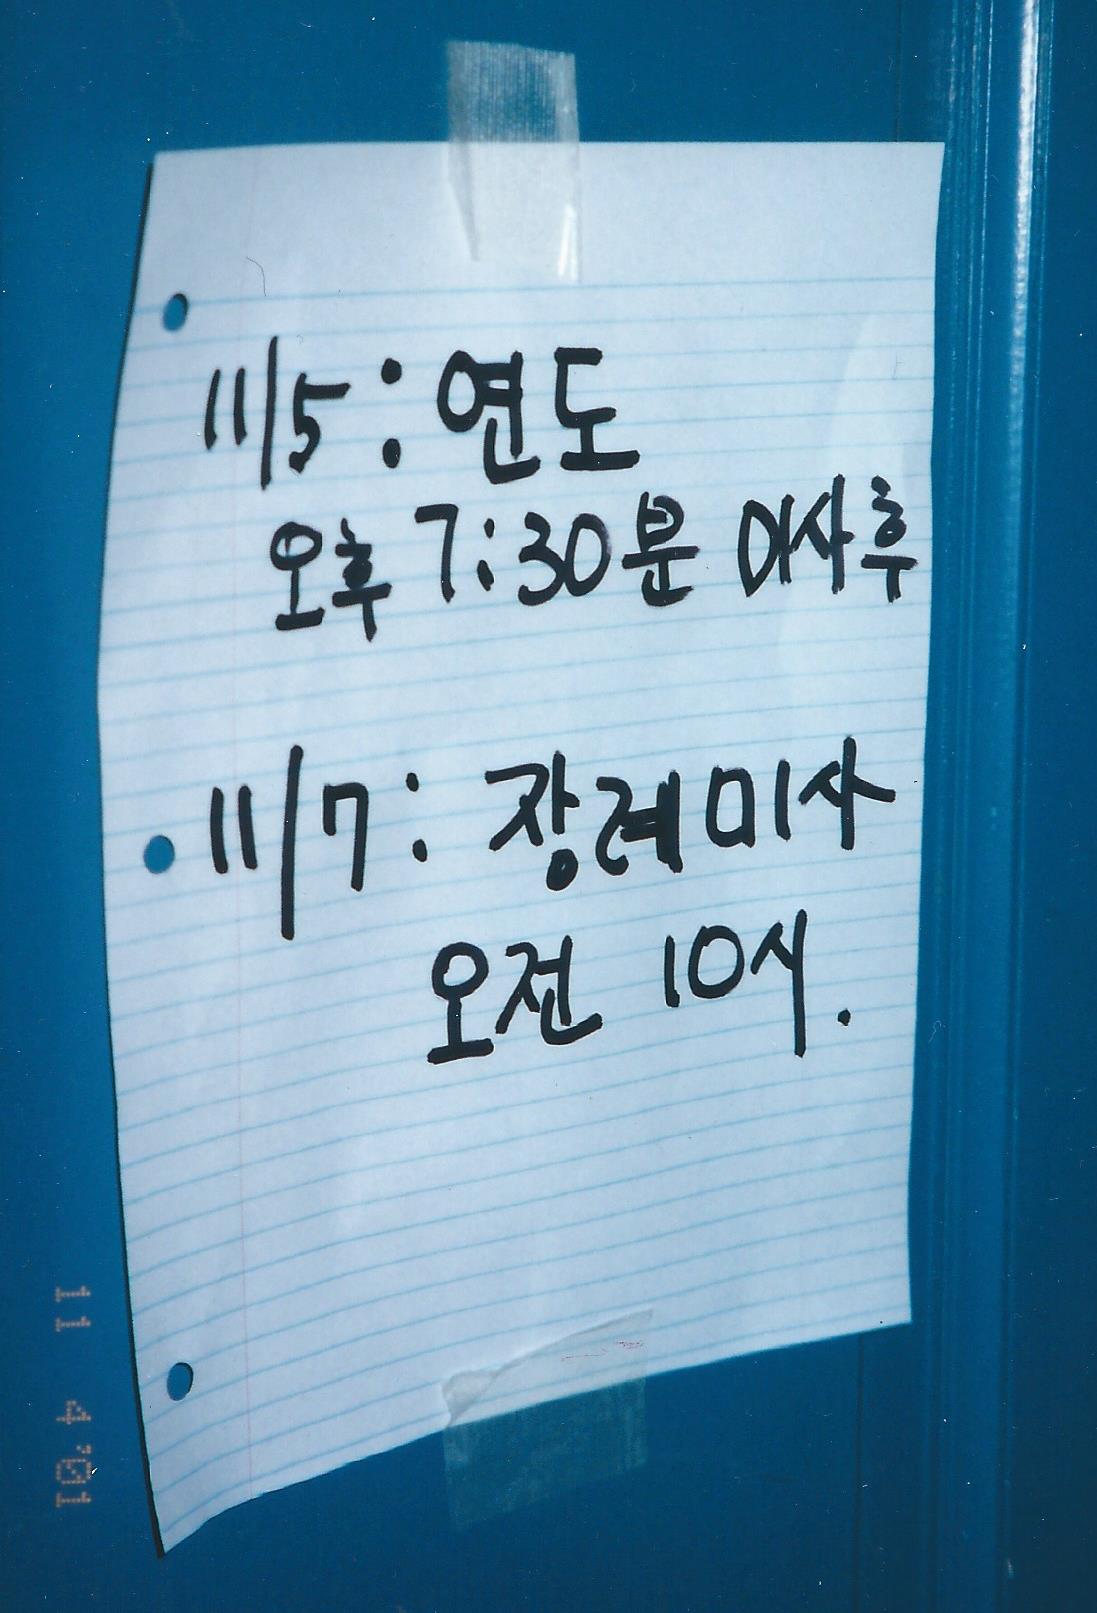 11/5: 연도
오후 7:30분 미사후
11/7: 장례미사
오전 10시.
11 4 '01